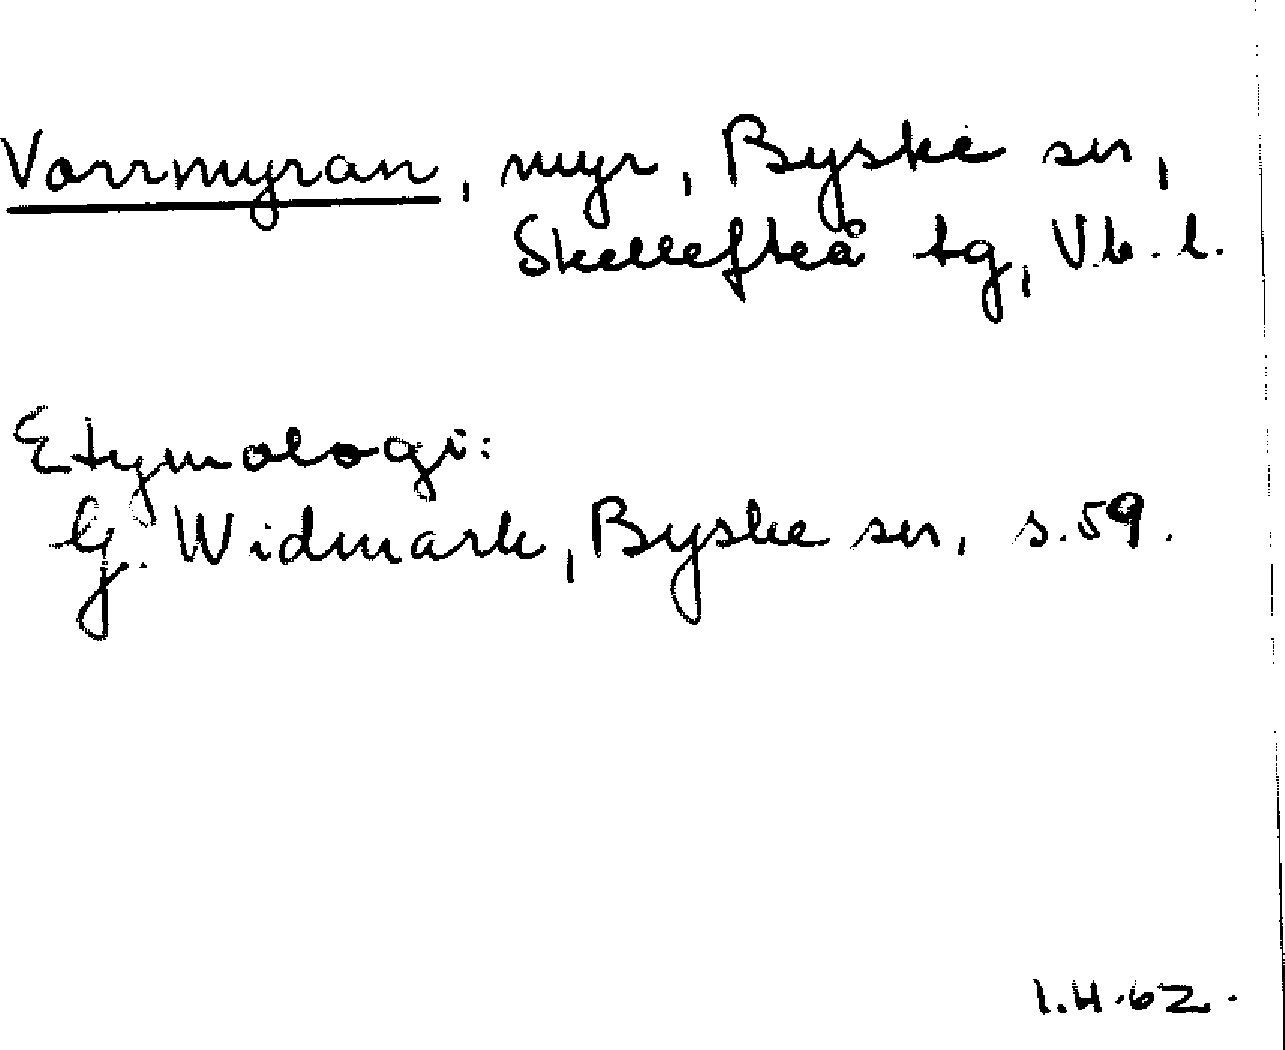 Vorrmyran, myr, Byske sn,
Skellefteå tg, Vb. l.
Etymologi:
G. Widmark, Byske sn, s. 59.
I.H. 62.